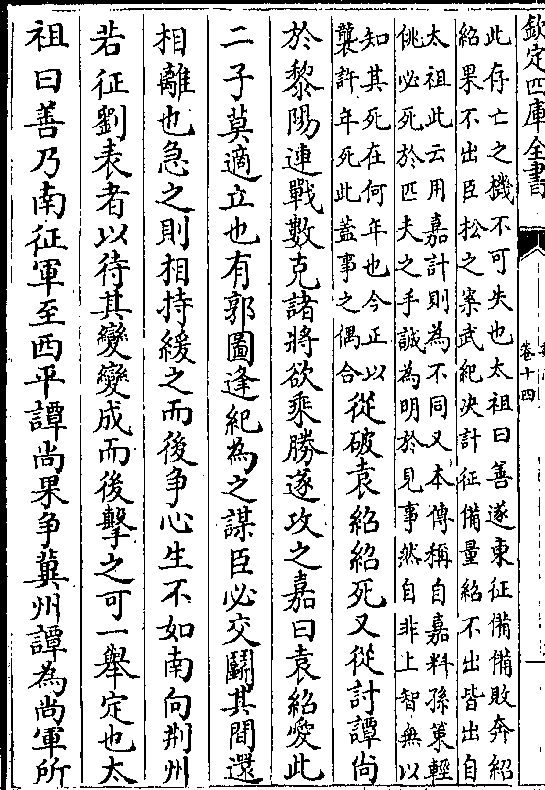 欽定四庫全書
卷十四
此存亡之機不可失也太祖曰善遂東征備備敗奔紹
紹果不出臣松之案武紀决計征備量紹不出皆出自
太祖此云用嘉計則為不同又本傳稱自嘉料孫策輕
佻必死於匹夫之手誠為明於見事然自非上智無以
知其死在何年也今正以
襲許年死此蓋事之偶合
從破袁紹紹死又從討譚尚
於黎陽連戰數克諸將欲乘勝遂攻之嘉曰袁紹愛此
二子莫適立也有郭圖逢紀為之謀臣必交鬭其間還
相離也急之則相持緩之而後争心生不如南向荆州
若征劉表者以待其變變成而後擊之可一舉定也太
祖曰善乃南征軍至西平譚尚果争冀州譚為尚軍所